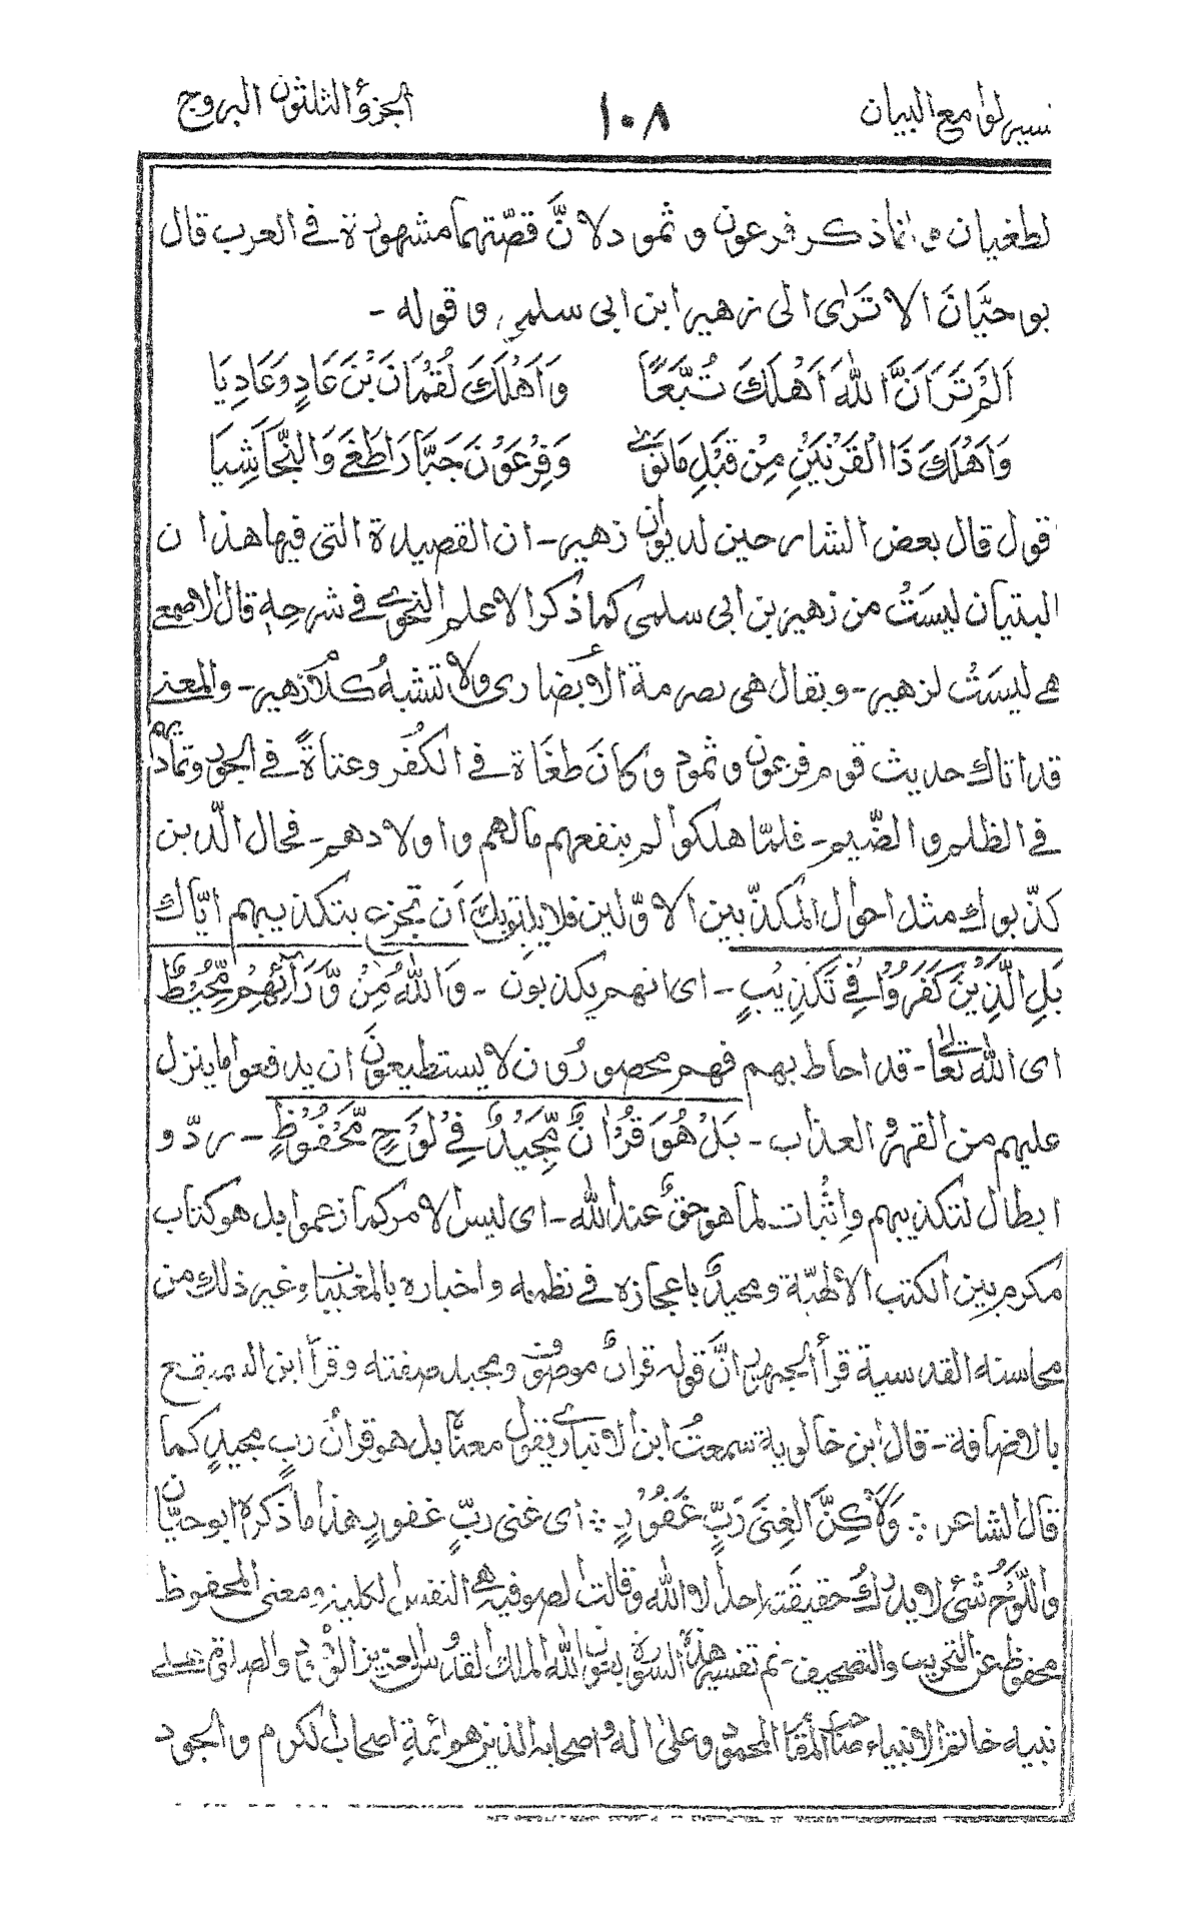 تفسير لوامع البيان ١٠٨ الجزؤ الثلثون البروج
لطغيان و انما ذكر فرعون و ثمود لانَّ قصّتهما مشهورة في العرب قال
بوحيَّانَ الا تَرٰى الى زهير ابن ابى سلمى و قوله -
اَلَمْ تَرَ اَنَّ اللّٰهَ اَهْلَكَ تُبَّعًا وَ اَهْلَكَ لُقْمَانَ بْنَ عَادٍ وَ عَادِيَا
وَ اَهْلَكَ ذَا الْقَرْنَيْنِ مِنْ قَبْلِ مَا تَوٰى وَ فِرْعَوْنَ جَبَّارَ اطَغٰى وَ النَّجَاشِيَا
قول قال بعض الشارحين لديوان زهير - ان القصيدة التى فيها هذا ن
البتيان ليسَتْ من زهير بن ابى سلمى كما ذكر الاعلم النحوى في شرحه قال الاصمعى
هى ليسَتْ لزهير - و يقال هى بصرمة الأنصارى ولا تشبهُ كلام زهير - والمعنے
قد اتاك حديث قوم فرعون و ثمود وكانَ طغَاة في الكُفر وعتاةً في الجحود وتمادٍ بهم
في الظلم و الضّيم - فلمّا هلكوا لم ينفعهم مالهم و اولادهم - فحال الّذين
كذّبوك مثل احوال المكذّبين الاوّلين فلا يلتوبك اَن تجزع بتكذيبهم ايّاك
بَلِ الَّذِيْنَ كَفَرُوْا فِيْ تَكْذِيْبٍ - اى انهم يكذبون - وَ اللّٰهُ مِنْ وَّرَآئِهِمْ مُّحِيْطٌ
اى اللّٰه تعالٰى - قد احاط بهم فهم محصورُون لا يستطيعون ان يدفعوا ما ينزل
عليهم من القهر و العذاب - بَلْ هُوَ قُرْاٰنٌ مَّجِيْدٌ فِيْ لَوْحٍ مَّحْفُوْظٍ - ردّ و
ابطال لتكذيبهم و اِثْبات لما هو حقٌ عند اللّٰه - اى ليس الامر كما زعموا بل هو كتاب
مكرم بين الكتب الالٰهيّة و مجيدٌ باعجازه في نظمه و اخباره بالمغيبات و غير ذلك من
محاسنه القدسية قرأ الجمهور انَّ قوله قراٰنٌ موصوف و مجيد صفته و قرأ ابن السميقع
بالاضافة - قال ابن خالوية سمعتُ ابن الانبارى يقول معناه بل هو قراٰنُ ربٍ مجيدٍ كما
قال الشاعر ∴ وَلٰكِنَّ الْغِنٰى رَبٌّ غَفُوْرٌ ∴ اى غنى ربٍّ غفورٍ هذا ما ذكره ابو حيّان
واللَّوْحُ شئ لا يدرك حقيقته احد الا اللّٰه وقالت الصوفية هى النفس الكلية و معنى المحفوظ
محفوظ عن التخريب والتصحيف - تم تفسير هذه السورة بعون اللّٰه الملك القدّوس العزيز والصلوٰة على
نبيه خاتم الانبياء صاحب المقام المحمود وعلىٰ اله و اصحابه الذين هو ائمة اصحاب الكرم و الجود